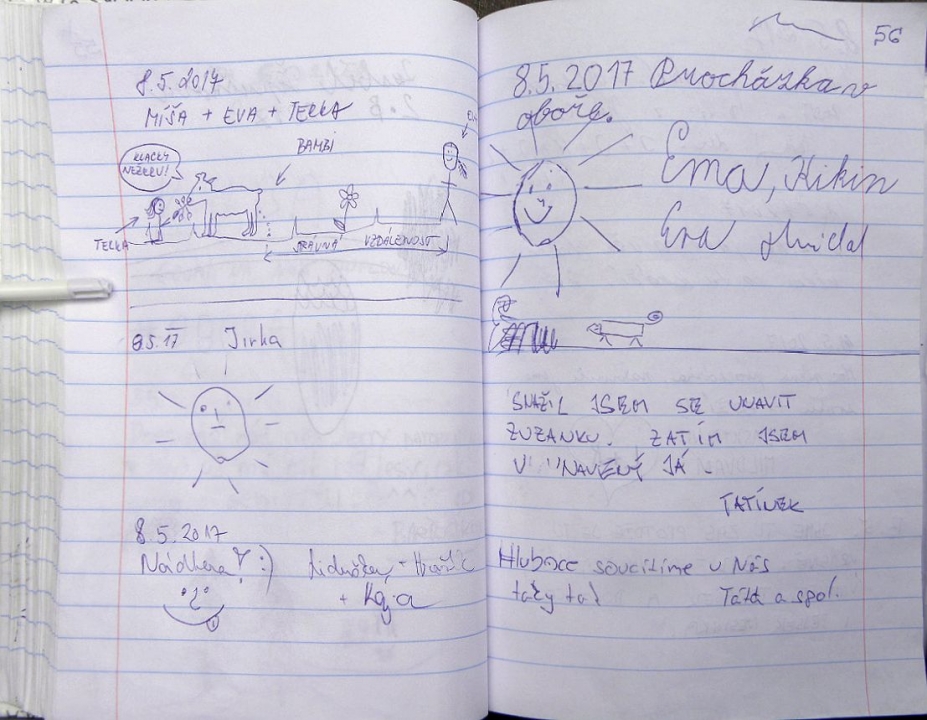 8.5.2017
MÍŠA + EVA + TERKA
BAMBI
KLACKY
NEŽERU!
TERKA
SPRÁVNÁ VZDÁLENOST
8.5.17 Jirka
8.5.2017
Nádhera! :)
+ Kája
56
8.5.2017 Procházka v
oboře.
Ema, Kikin
Ema
SNAŽIL JSEM SE UNAVIT
ZUZANKU. ZATÍM JSEM
UNAVENÝ JÁ.
TATÍNEK
Hluboce soucítíme u Nás
taky tak
Táta a spol.